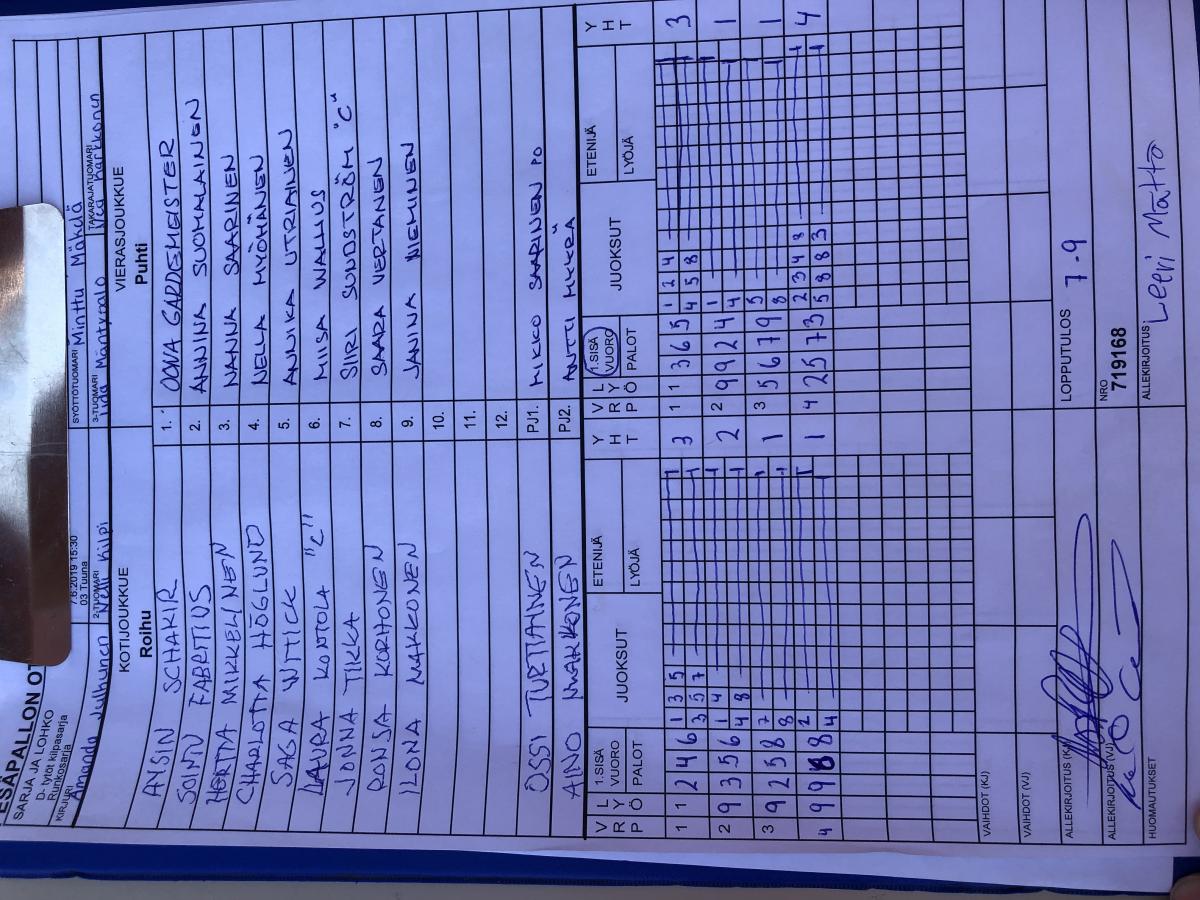 ESÄPALLON OT
SARJA JA LOHKO
D- tytöt kilpasarja
Runkosarja
7.6.2019 15:30
03 Tuuna
KIRJURI
Amanda Julhunen
2-TUOMARI
Nelli Kilpi
SYÖTTÖTUOMARI
Minttu Mäkelä
3-TUOMARI
Iida Mäntysalo
TAKARAJATUOMARI
KOTIJOUKKUE
Roihu
VIERASJOUKKUE
Puhti
AYSIN SCHAKIR
1. OONA GARDEMEISTER
SOINTU FABRITIUS
2. ANNINA SUOMALAINEN
HERTTA MIKKELINEN
3. NANNA SAARINEN
CHARLOTTA HÖGLUND
4. NELLA MYÖHÄNEN
SAGA WITICK
5. ANNIKA UTRIAINEN
LAURA KONTOLA "C"
6. MIISA WALLUS
JONNA TIKKA
7. SIIRI SUNDSTRÖM "C"
RONJA KORHONEN
8. SAARA VERTANEN
ILONA MAKKONEN
9. JANINA NIEMINEN
10.
11.
12.
OSSI TURTIAINEN
PJ1. MIKKO SAARINEN PO
AINO MARKKONEN
PJ2. ANTTI
V R P L Y Ö 1.SISÄ VUORO PALOT JUOKSUT ETENIJÄ LYÖJÄ Y H T
V R P L Y Ö 1.SISÄ VUORO PALOT JUOKSUT ETENIJÄ LYÖJÄ Y H T
1 1 2 4 6 1 3 5 3
3 5 7
1 1 3 6 5 1 2 4 3
4 5 8
2 9 3 5 6 1 4 2
4 8
2 9 9 2 4 1 1
4
3 9 2 5 8 7 1
8
3 5 6 7 9 5 1
8
4 9 9 8 8 2 1
4
4 4 2 5 7 3 2 3 4 8 4
5 8 8 3
VAIHDOT (KJ)
VAIHDOT (VJ)
ALLEKIRJOITUS (KJ)
LOPPUTULOS 7-9
ALLEKIRJOITUS (VJ)
NRO
719168
HUOMAUTUKSET
ALLEKIRJOITUS:
Leevi Matto